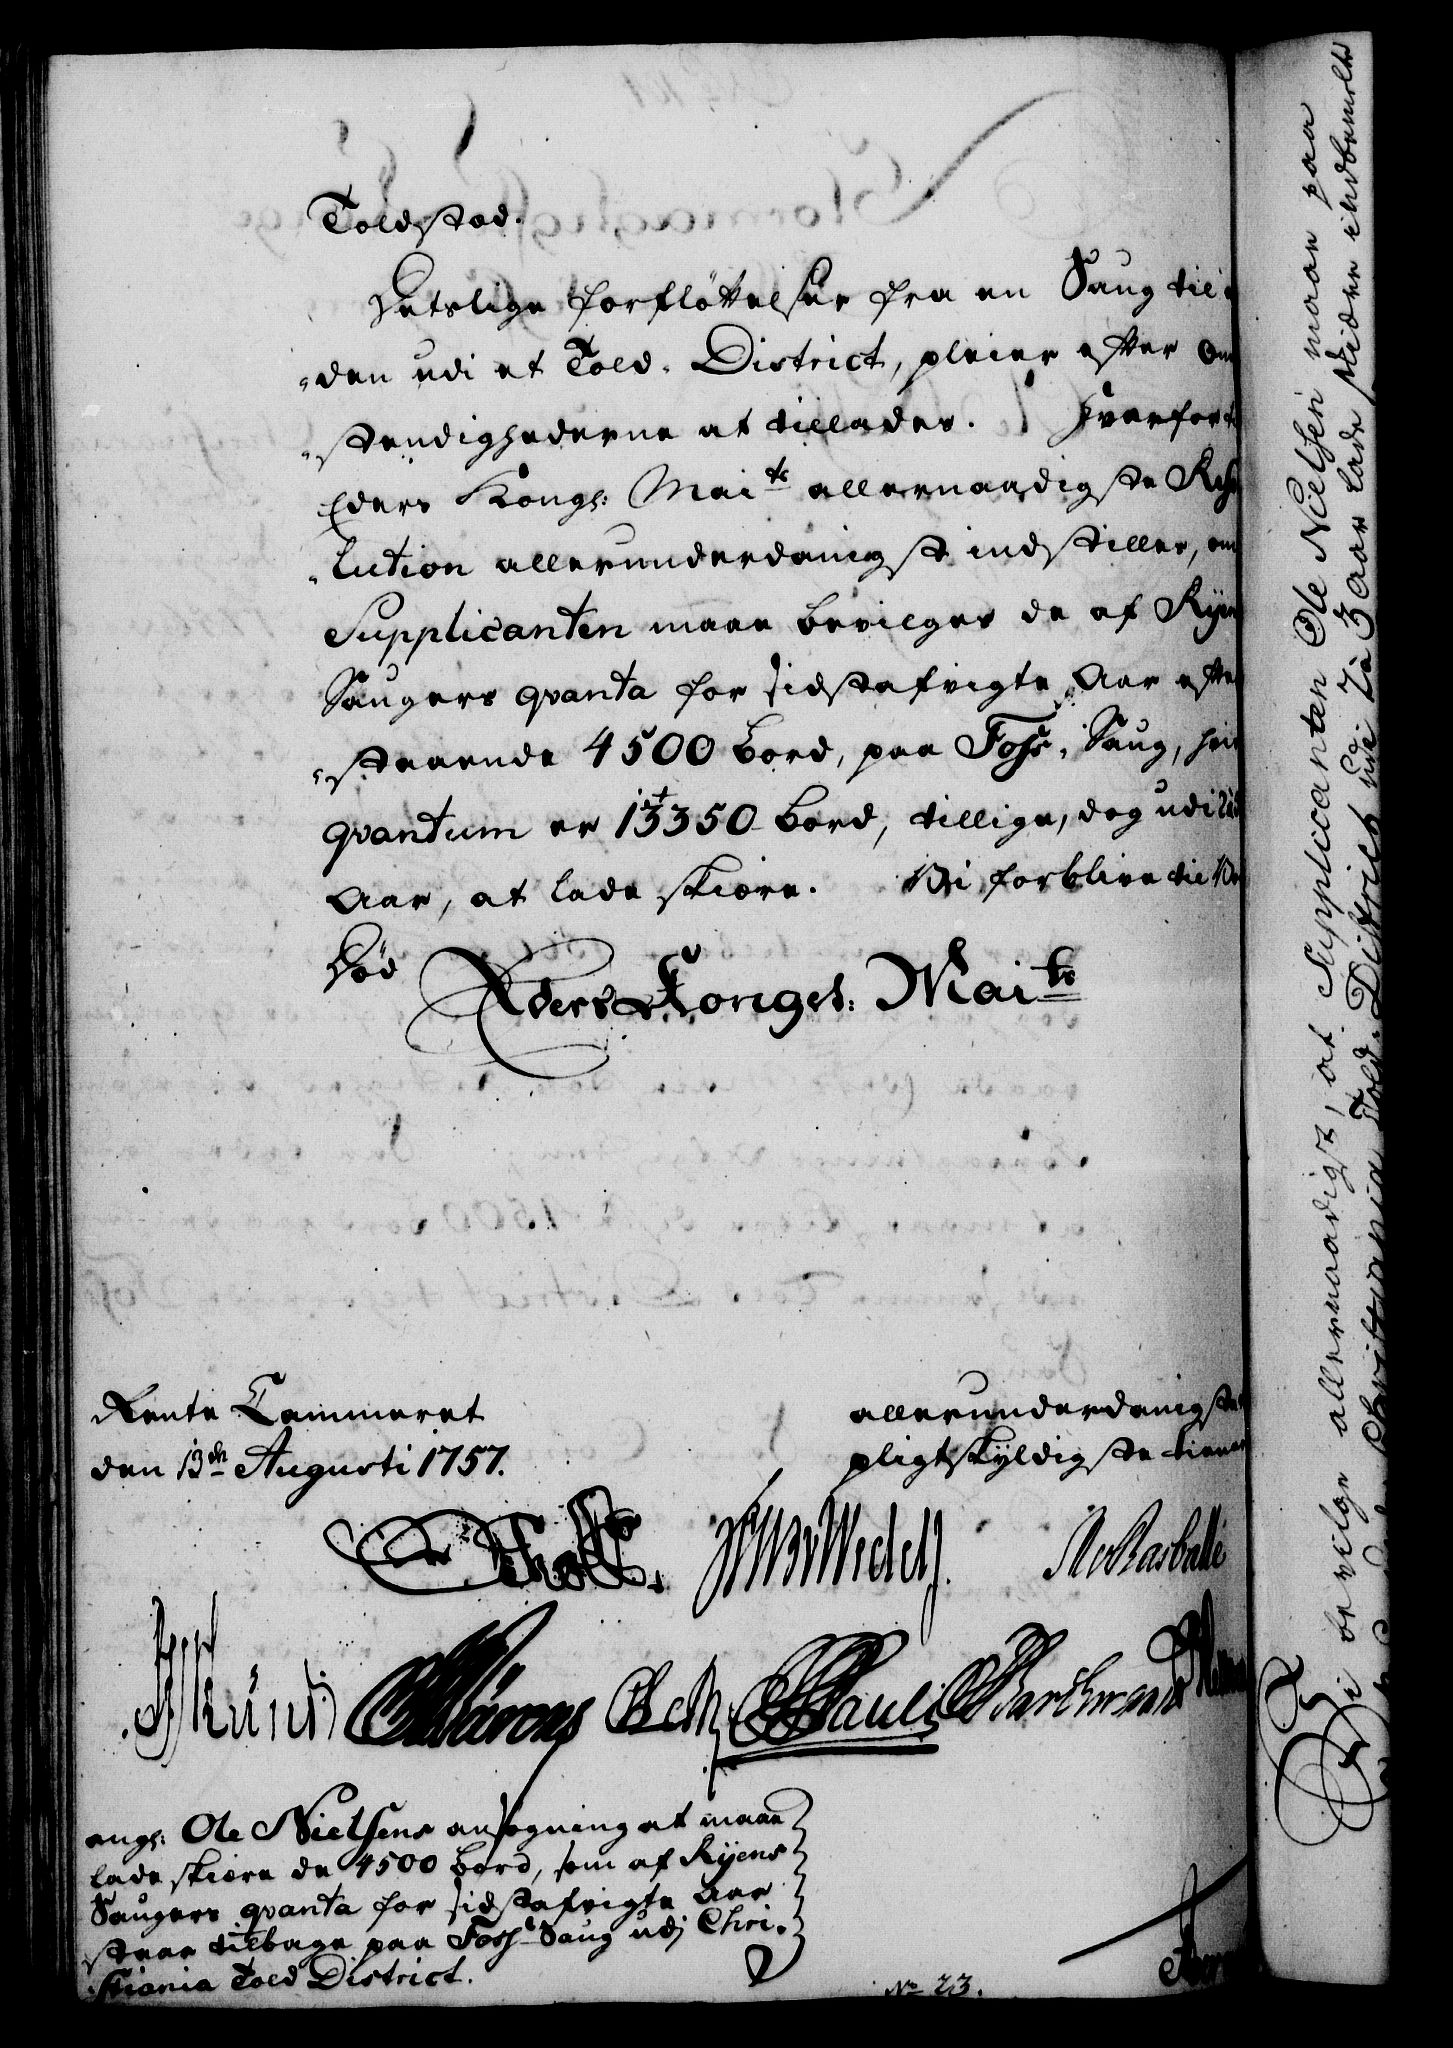 Toldstad.
Detslige forfløttelser fra en Saug til
den udi et Told-District, pleier efter om
stendighederne at tillades. Hvorfor
Eders Kongl: Mai^ts allernaadigste Reso
lution allerunderdanigst indstilles, om
Supplicanten maae bevilges de af Ryens
Saugers qvanta for sidstafvigte Aar efter
staaende 4500 Bord, paa Foss-Saug, hvis
qvantum er 13350 Bord, tillige, dog udi
Aar, at lade skiære. Vi forblive til Vor
Død
Eders Kongel: Mai^ts
Rente Cammeret
den 13^de Augusti 1757.
allerunderdanigste
pligtskyldigste tienere
Wedel
Knuth
Pauli
ang: Ole Nielsens ansøgning at maae
lade skiære de 4500 bord, som af Ryens
Saugers qvanta for sidstafvigte Aar
staar tilbage paa Foss-Saug udj Chri-
stiania Told District.
No 23.
Vi bevilge allernaadigst, at Supplicanten Ole Nielsen maae paa
Told-District udi 2 à 3 Aar lade skiære indbemelte